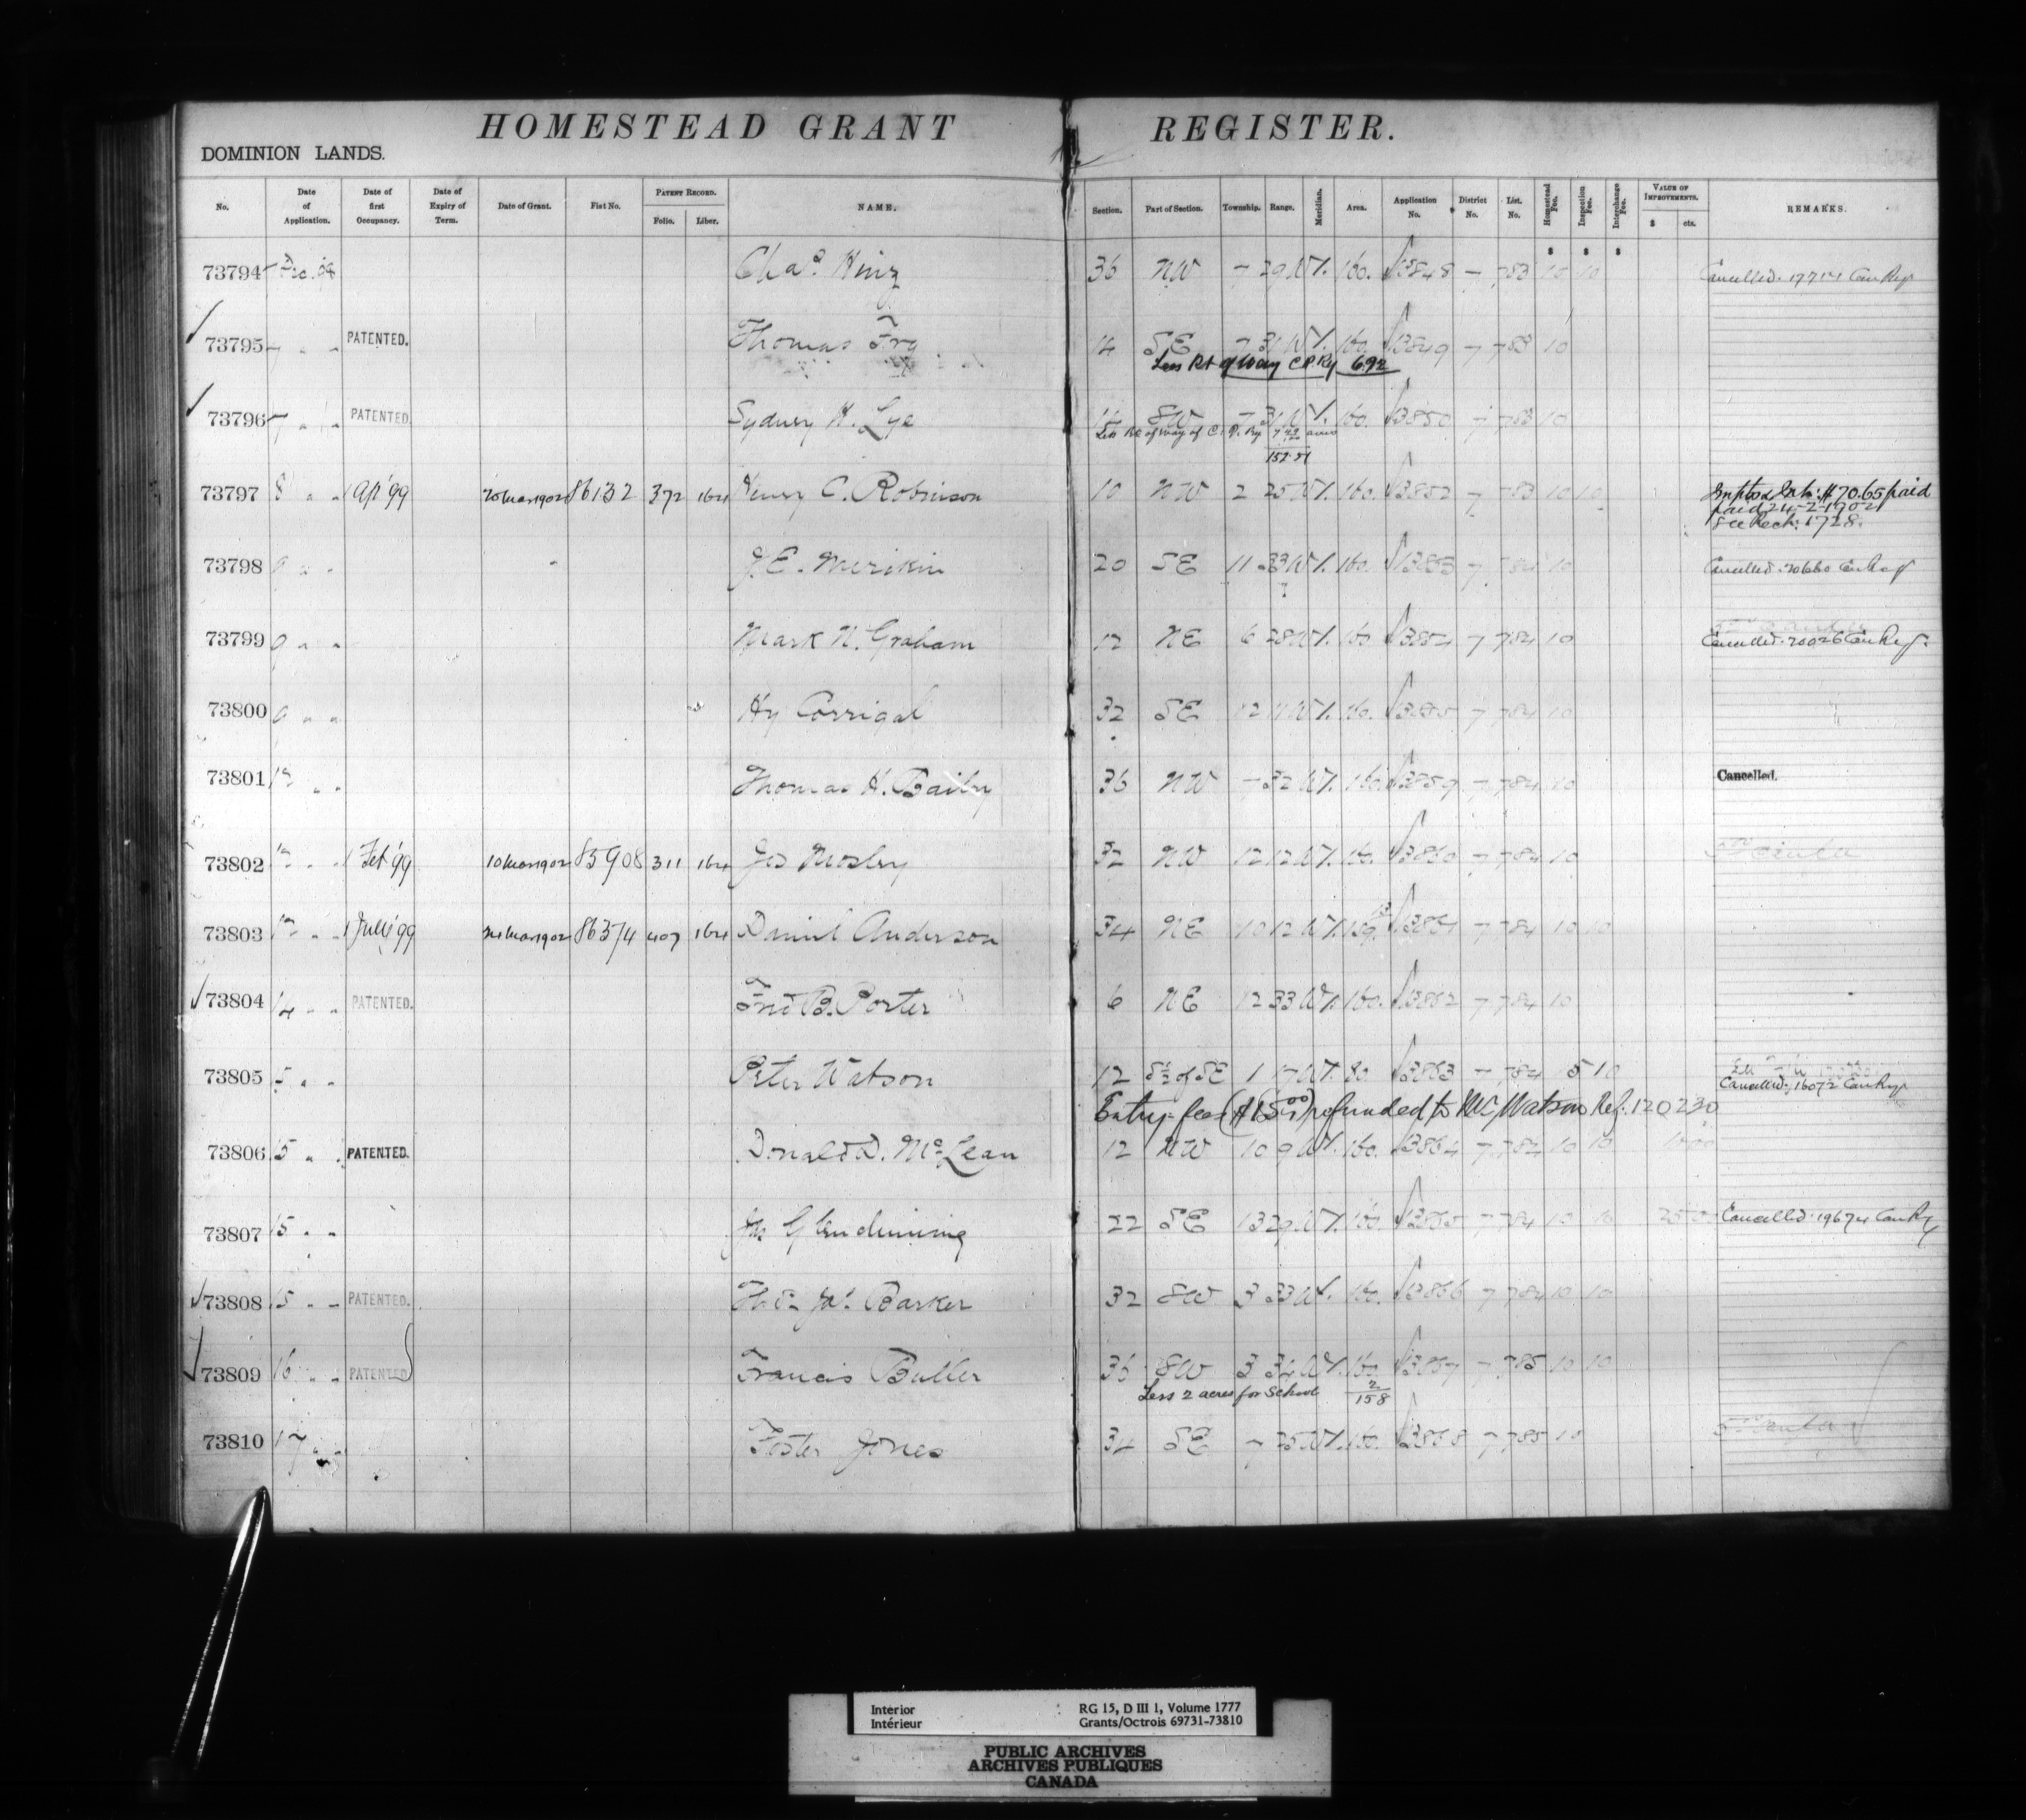 HOMESTEAD GRANT REGISTER.
DOMINION LANDS.
No. Date of Application. Date of first Occupancy. Date of Expiry of Term. Date of Grant. Fist No. PATENT RECORD. Folio. Liber. NAME. Section. Part of Section. Township. Range. Meridian. Area. Application No. District No. List. No. Homestead Fee. Inspection Fee. Interchange Fee. VALUE OF IMPROVEMENTS. $ cts. REMARKS.
$ $ $
73794 Chas. 36 NW 7 29 W1. 160. 13848 7 783 10 10 Cancelled. 17714 Can Reg
73795 7 " " PATENTED. Thomas 14 SE 7 31 W1. 160. 13849 7 783 10
Less Rt of Way C.P.Ry 6.92
73796 7 " " PATENTED. Sydney H. Lye SW 7 31 W1. 160. 13850 7 783 10
Less Rt of Way of C. P. Ry 7.49 acres
152.51
73797 8 " " 1 Ap '99 20 Mar 1902 86132 372 164 Henry C. Robinson 10 NW 2 25 W1. 160. 13852 7 783 10 10 $70.65 paid
paid 24-2-1902
See 1728.
73798 9 " " J. E. Merikin 20 SE 11 33 W1. 160. 13853 7 784 10 Cancelled. 20660 Can Reg
73799 9 " " Mark N. Graham 12 NE 6 28 W1. 160 13854 7 784 10 Cancelled. 20026 Can Reg.
73800 9 " " Hy Corrigal 32 SE 12 11 W1. 160. 13855 7 784 10
73801 12 " " Thomas H. Bailey 36 NW 7 32 W1. 160. 13859 7 784 10 Cancelled.
73802 12 " " 1 Feb '99 10 Mar 1902 85908 311 164 Jas Mosley 32 NW 12 12 W1. 160. 13860 7 784 10
73803 12 " " 1 '99 24 Mar 1902 86374 407 164 Daniel Anderson 34 NE 10 12 W1. 159. 13861 7 784 10 10
73804 14 " " PATENTED. Fred B. Porter 6 NE 12 33 W1. 160. 13862 7 784 10
73805 " " Peter Watson 12 S½ of SE 1 17 W1. 80. 13863 7 784 5 10
Cancelled. 16072 Can Reg
Entry fees ($15.00) refunded to Watson Ref. 120230
73806 15 " " PATENTED. Donald D. McLean 12 NW 10 9 W1. 160. 13864 7 784 10 10
73807 15 " " Jas Glendinning 22 SE 13 29 W1. 160. 13865 7 784 10 10 Cancelled. 19674 Can Reg
73808 15 " " PATENTED. Barker 32 SW 3 33 W1. 160. 13866 7 784 10 10
73809 16 " " PATENTED Francis Buller 36 SW 3 34 W1. 160. 13867 7 785 10 10
Less 2 acres for School 2
158
73810 17 " " Foster Jones 34 SE 7 25 W1. 160. 13868 7 785 10
Interior RG 15, D III 1, Volume 1777
Intérieur Grants/Octrois 69731-73810
PUBLIC ARCHIVES
ARCHIVES PUBLIQUES
CANADA